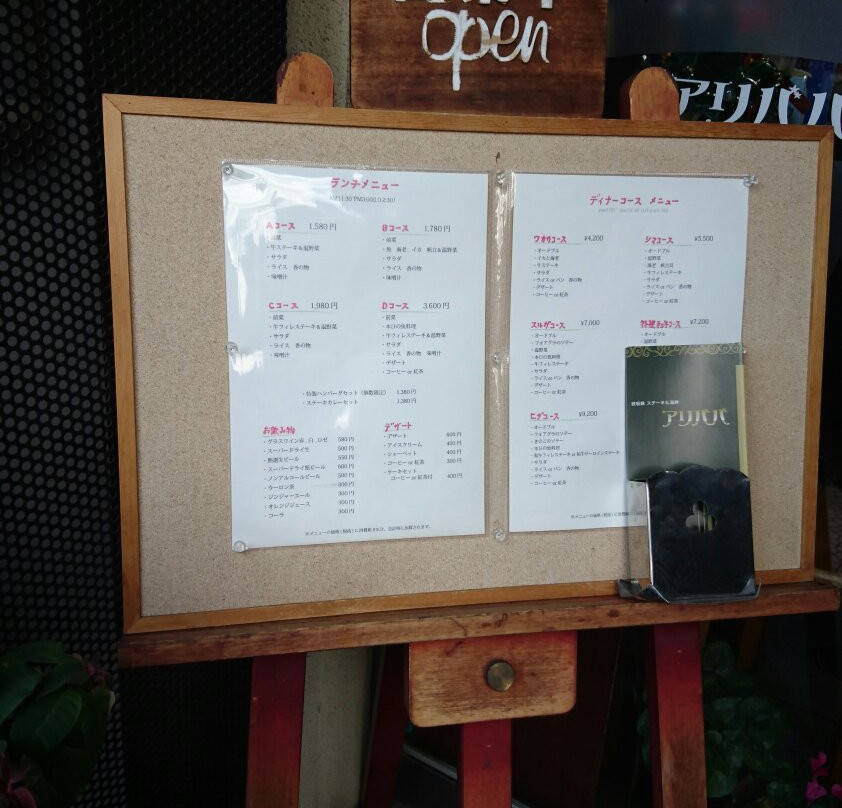 open
アリババ
ランチメニュー
Aコース 1,580円
・前菜
・牛ステーキ&温野菜
・サラダ
・ライス 香の物
・味噌汁
Bコース 1,780円
・前菜
・魚 海老 イカ 帆立&温野菜
・サラダ
・ライス 香の物
・味噌汁
Cコース 1,980円
・前菜
・牛フィレステーキ&温野菜
・サラダ
・ライス 香の物
・味噌汁
Dコース 3,600円
・前菜
・本日の魚料理
・牛フィレステーキ&温野菜
・サラダ
・ライス 香の物 味噌汁
・デザート
・コーヒー or 紅茶
・特製ハンバーグセット(個数限定) 1,380円
・ステーキカレーセット 1,280円
お飲み物
・グラスワイン赤 白 ロゼ 580円
・スーパードライ生 500円
・熟撰生ビール 550円
・スーパードライ瓶ビール 600円
・ノンアルコールビール 500円
・ウーロン茶 300円
・ジンジャーエール 300円
・オレンジジュース 300円
・コーラ 300円
デザート
・デザート 600円
・アイスクリーム 400円
・シャーベット 400円
・コーヒー or 紅茶 300円
・ケーキセット
コーヒー or 紅茶付 400円
ディナーコース メニュー
ワオカコース ¥4,200
・オードブル
・牛ステーキ
・サラダ
・ライス or パン 香の物
・デザート
・コーヒー or 紅茶
シマコース ¥5,500
・オードブル
・温野菜
・海老 帆立貝
・牛フィレステーキ
・サラダ
・ライス or パン 香の物
・デザート
・コーヒー or 紅茶
スルガコース ¥7,000
・オードブル
・フォアグラのソテー
・温野菜
・本日の魚料理
・牛フィレステーキ
・サラダ
・ライス or パン 香の物
・デザート
・コーヒー or 紅茶
特選和牛コース ¥7,200
・オードブル
・温野菜
ヒダコース ¥9,200
・オードブル
・フォアグラのソテー
・きのこのソテー
・本日の魚料理
・和牛フィレステーキ or 和牛サーロインステーキ
・サラダ
・ライス or パン 香の物
・デザート
・コーヒー or 紅茶
鉄板焼 ステーキ&海鮮
アリババ